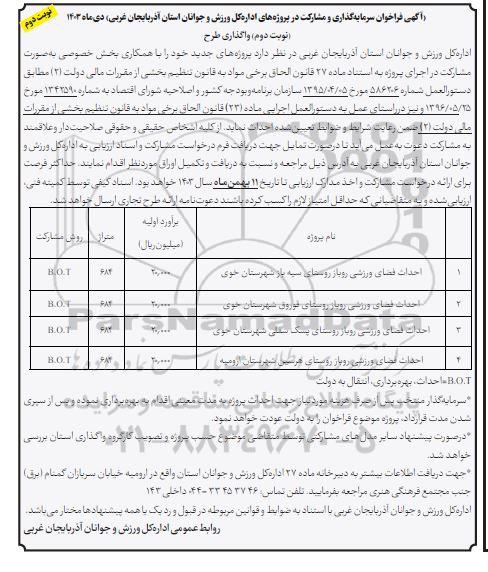 نوبت دوم
(آگهی فراخوان سرمایه‌گذاری و مشارکت در پروژه‌های اداره‌کل ورزش و جوانان استان آذربایجان غربی) دی‌ماه ۱۴۰۳
(نوبت دوم) واگذاری طرح
اداره‌کل ورزش و جوانان استان آذربایجان غربی در نظر دارد پروژه‌های جدید خود را با همکاری بخش خصوصی به‌صورت
مشارکت در اجرای پروژه به استناد ماده ۲۷ قانون الحاق برخی مواد به قانون تنظیم بخشی از مقررات مالی دولت (۲) مطابق
دستورالعمل شماره ۵۸۶۲۰۶ مورخ ۱۳۹۵/۰۴/۰۵ سازمان برنامه‌وبودجه کشور و اصلاحیه شورای اقتصاد به شماره ۱۳۴۲۵۹۰ مورخ
۱۳۹۶/۰۵/۲۵ و نیز در راستای عمل به دستورالعمل اجرایی ماده (۲۳) قانون الحاق برخی مواد به قانون تنظیم بخشی از مقررات
مالی دولت (۲) ضمن رعایت شرایط و ضوابط تعیین شده احداث نماید. از کلیه اشخاص حقیقی و حقوقی صلاحیت‌دار و علاقمند
به مشارکت دعوت به‌عمل می‌آید تا درصورت تمایل جهت دریافت فرم درخواست مشارکت و اسناد ارزیابی به اداره‌کل ورزش و
جوانان استان آذربایجان غربی به آدرس ذیل مراجعه و نسبت به دریافت و تکمیل اوراق موردنظر اقدام نمایند. حداکثر فرصت
برای ارائه درخواست مشارکت و اخذ مدارک ارزیابی تا تاریخ ۱۱ بهمن‌ماه سال ۱۴۰۳ خواهد بود. اسناد کیفی توسط کمیته فنی،
ارزیابی شده و به متقاضیانی که حداقل امتیاز لازم را کسب کرده باشند دعوت‌نامه ارائه طرح تجاری ارسال خواهد شد.
نام پروژه برآورد اولیه (میلیون ریال) متراژ روش مشارکت
۱ احداث فضای ورزشی روباز روستای سیه باز شهرستان خوی ۲۰,۰۰۰ ۶۸۴ B.O.T
۲ احداث فضای ورزشی روباز روستای قوروق شهرستان خوی ۲۰,۰۰۰ ۶۸۴ B.O.T
۳ احداث فضای ورزشی روباز روستای پسک سفلی شهرستان خوی ۲۰,۰۰۰ ۶۸۴ B.O.T
۴ احداث فضای ورزشی روباز روستای شهرستان ارومیه ۲۰,۰۰۰ ۶۸۴ B.O.T
B.O.T=احداث، بهره‌برداری، انتقال به دولت
*سرمایه‌گذار منتخب پس از صرف هزینه موردنیاز جهت احداث پروژه به مدت معینی اقدام به بهره‌برداری نموده و پس از سپری
شدن مدت قرارداد، پروژه موضوع فراخوان را به دولت عودت خواهد نمود.
*درصورت پیشنهاد سایر مدل‌های مشارکتی توسط متقاضی موضوع حسب پروژه و تصویب کارگروه واگذاری استان بررسی
خواهد شد.
*جهت دریافت اطلاعات بیشتر به دبیرخانه ماده ۲۷ اداره‌کل ورزش و جوانان استان واقع در ارومیه خیابان سربازان گمنام (برق)
جنب مجتمع فرهنگی هنری مراجعه بفرمایید. تلفن تماس: ۴۶ ۳۷ ۴۵ ۳۳ -۰۴۴ داخلی ۱۴۳
اداره‌کل ورزش و جوانان آذربایجان غربی با استناد به ضوابط و قوانین مربوطه در قبول و رد یک یا همه پیشنهادها مختار می‌باشد.
روابط عمومی اداره‌کل ورزش و جوانان آذربایجان غربی
ParsNamadData
۰۲۱-۸۸۳۴۹۶۷۰-۵